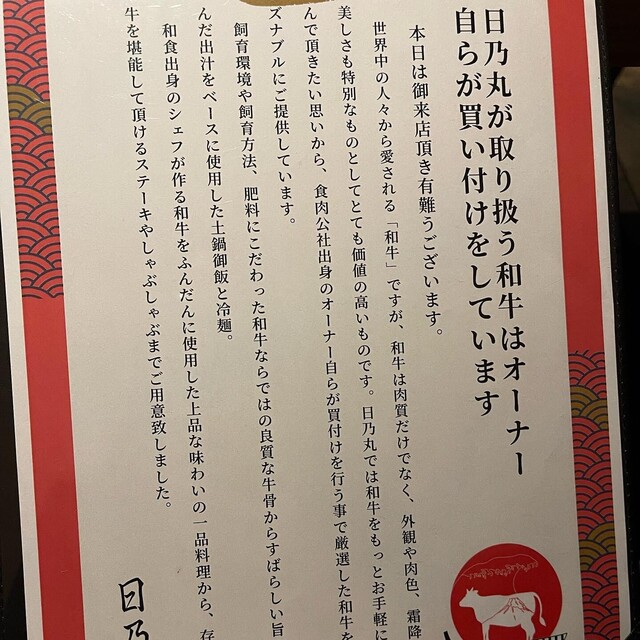 日乃丸が取り扱う和牛はオーナー
自らが買い付けをしています
本日は御来店頂き有難うございます。
世界中の人々から愛される「和牛」ですが、和牛は肉質だけでなく、外観や肉色、霜降
美しさも特別なものとしてとても価値の高いものです。日乃丸では和牛をもっとお手軽に
んで頂きたい思いから、食肉公社出身のオーナー自らが買付けを行う事で厳選した和牛を
ズナブルにご提供しています。
飼育環境や飼育方法、肥料にこだわった和牛ならではの良質な牛骨からすばらしい旨
んだ出汁をベースに使用した土鍋御飯と冷麺。
和食出身のシェフが作る和牛をふんだんに使用した上品な味わいの一品料理から、存
牛を堪能して頂けるステーキやしゃぶしゃぶまでご用意致しました。
日乃